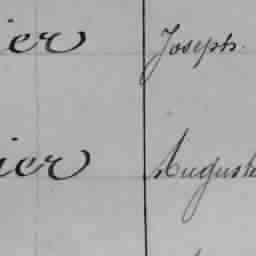 ier Joseph.
ier Auguste